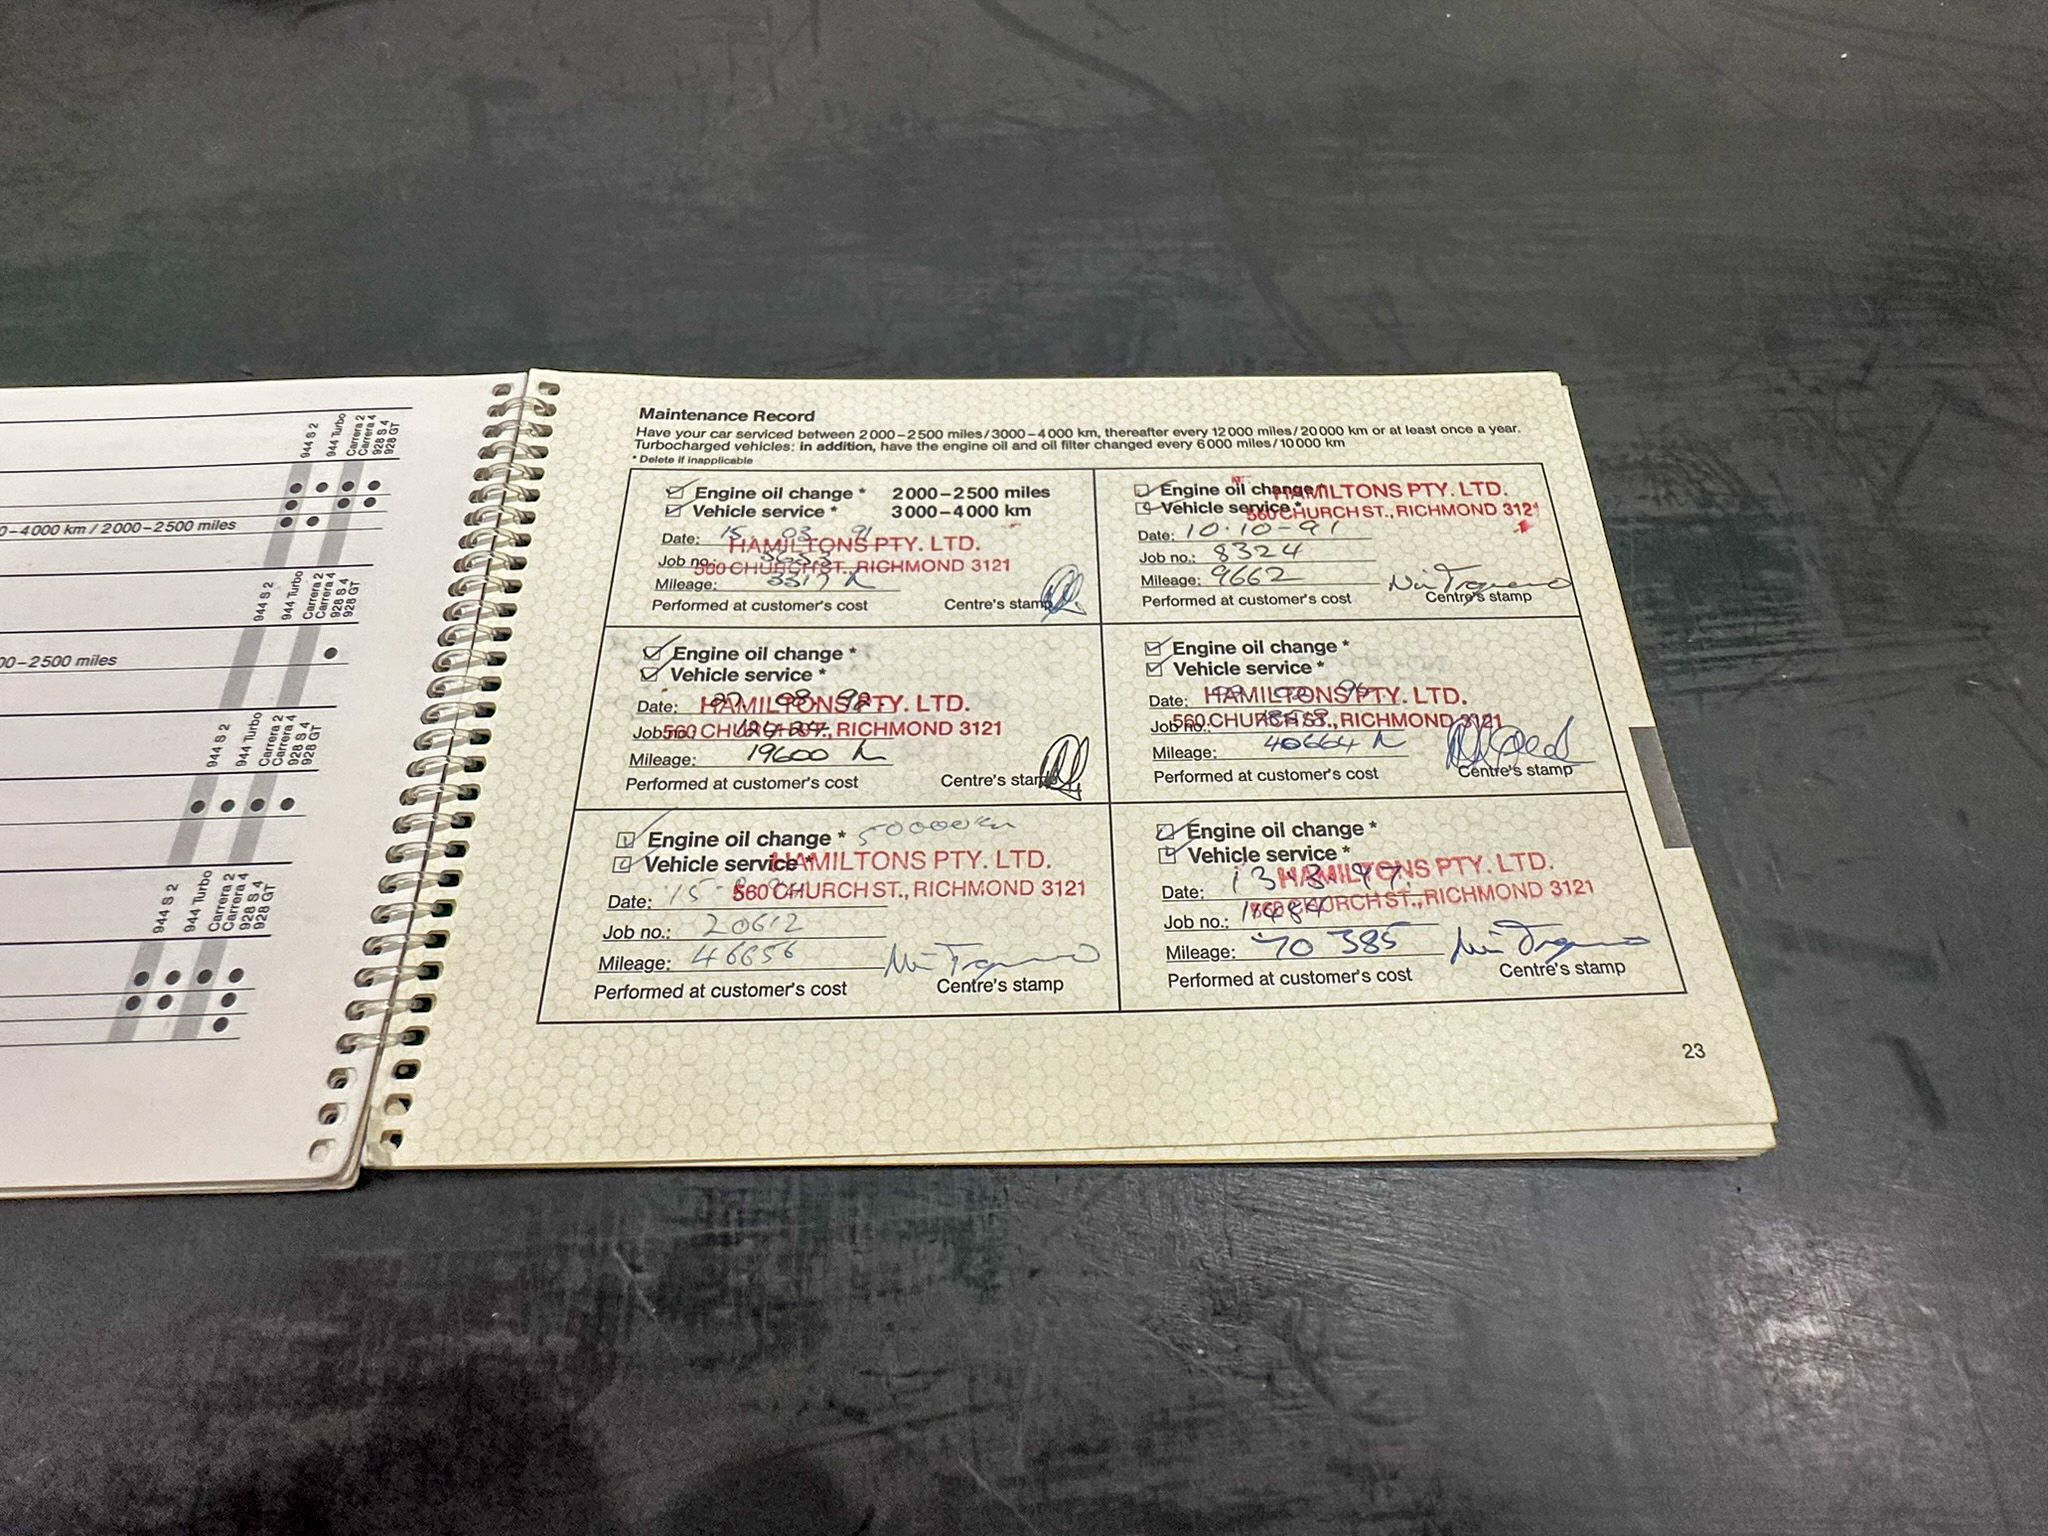 944 S 2
944 Turbo
Carrera 2
Carrera 4
928 S 4
928 GT
0-4000 km / 2000-2500 miles
944 S 2
944 Turbo
Carrera 2
Carrera 4
928 S 4
928 GT
00-2500 miles
944 S 2
944 Turbo
Carrera 2
Carrera 4
928 S 4
928 GT
944 S 2
944 Turbo
Carrera 2
Carrera 4
928 S 4
928 GT
Maintenance Record
Have your car serviced between 2000-2500 miles/3000-4000 km, thereafter every 12000 miles/20000 km or at least once a year.
Turbocharged vehicles: in addition, have the engine oil and oil filter changed every 6000 miles/10000 km
* Delete if inapplicable
Engine oil change * 2000-2500 miles
Vehicle service * 3000-4000 km
Date: 15 03 91
HAMILTONS PTY. LTD.
Job no.:
560 CHURCH ST., RICHMOND 3121
Mileage: 3317
Performed at customer's cost Centre's stamp
Engine oil change *
HAMILTONS PTY. LTD.
Vehicle service *
560 CHURCH ST., RICHMOND 3121
Date: 10-10-91
Job no.: 8324
Mileage: 9662
Performed at customer's cost Centre's stamp
Engine oil change *
Vehicle service *
Date: 08 92
HAMILTONS PTY. LTD.
Job no.:
560 CHURCH ST., RICHMOND 3121
Mileage: 19600
Performed at customer's cost Centre's stamp
Engine oil change *
Vehicle service *
Date:
HAMILTONS PTY. LTD.
Job no.:
560 CHURCH ST., RICHMOND 3121
Mileage: 40664
Performed at customer's cost Centre's stamp
Engine oil change * 50000 km
Vehicle service *
HAMILTONS PTY. LTD.
Date: 15
560 CHURCH ST., RICHMOND 3121
Job no.: 20612
Mileage: 46656
Performed at customer's cost Centre's stamp
Engine oil change *
Vehicle service *
HAMILTONS PTY. LTD.
Date: 13-3-97
560 CHURCH ST., RICHMOND 3121
Job no.:
Mileage: 70 385
Performed at customer's cost Centre's stamp
23